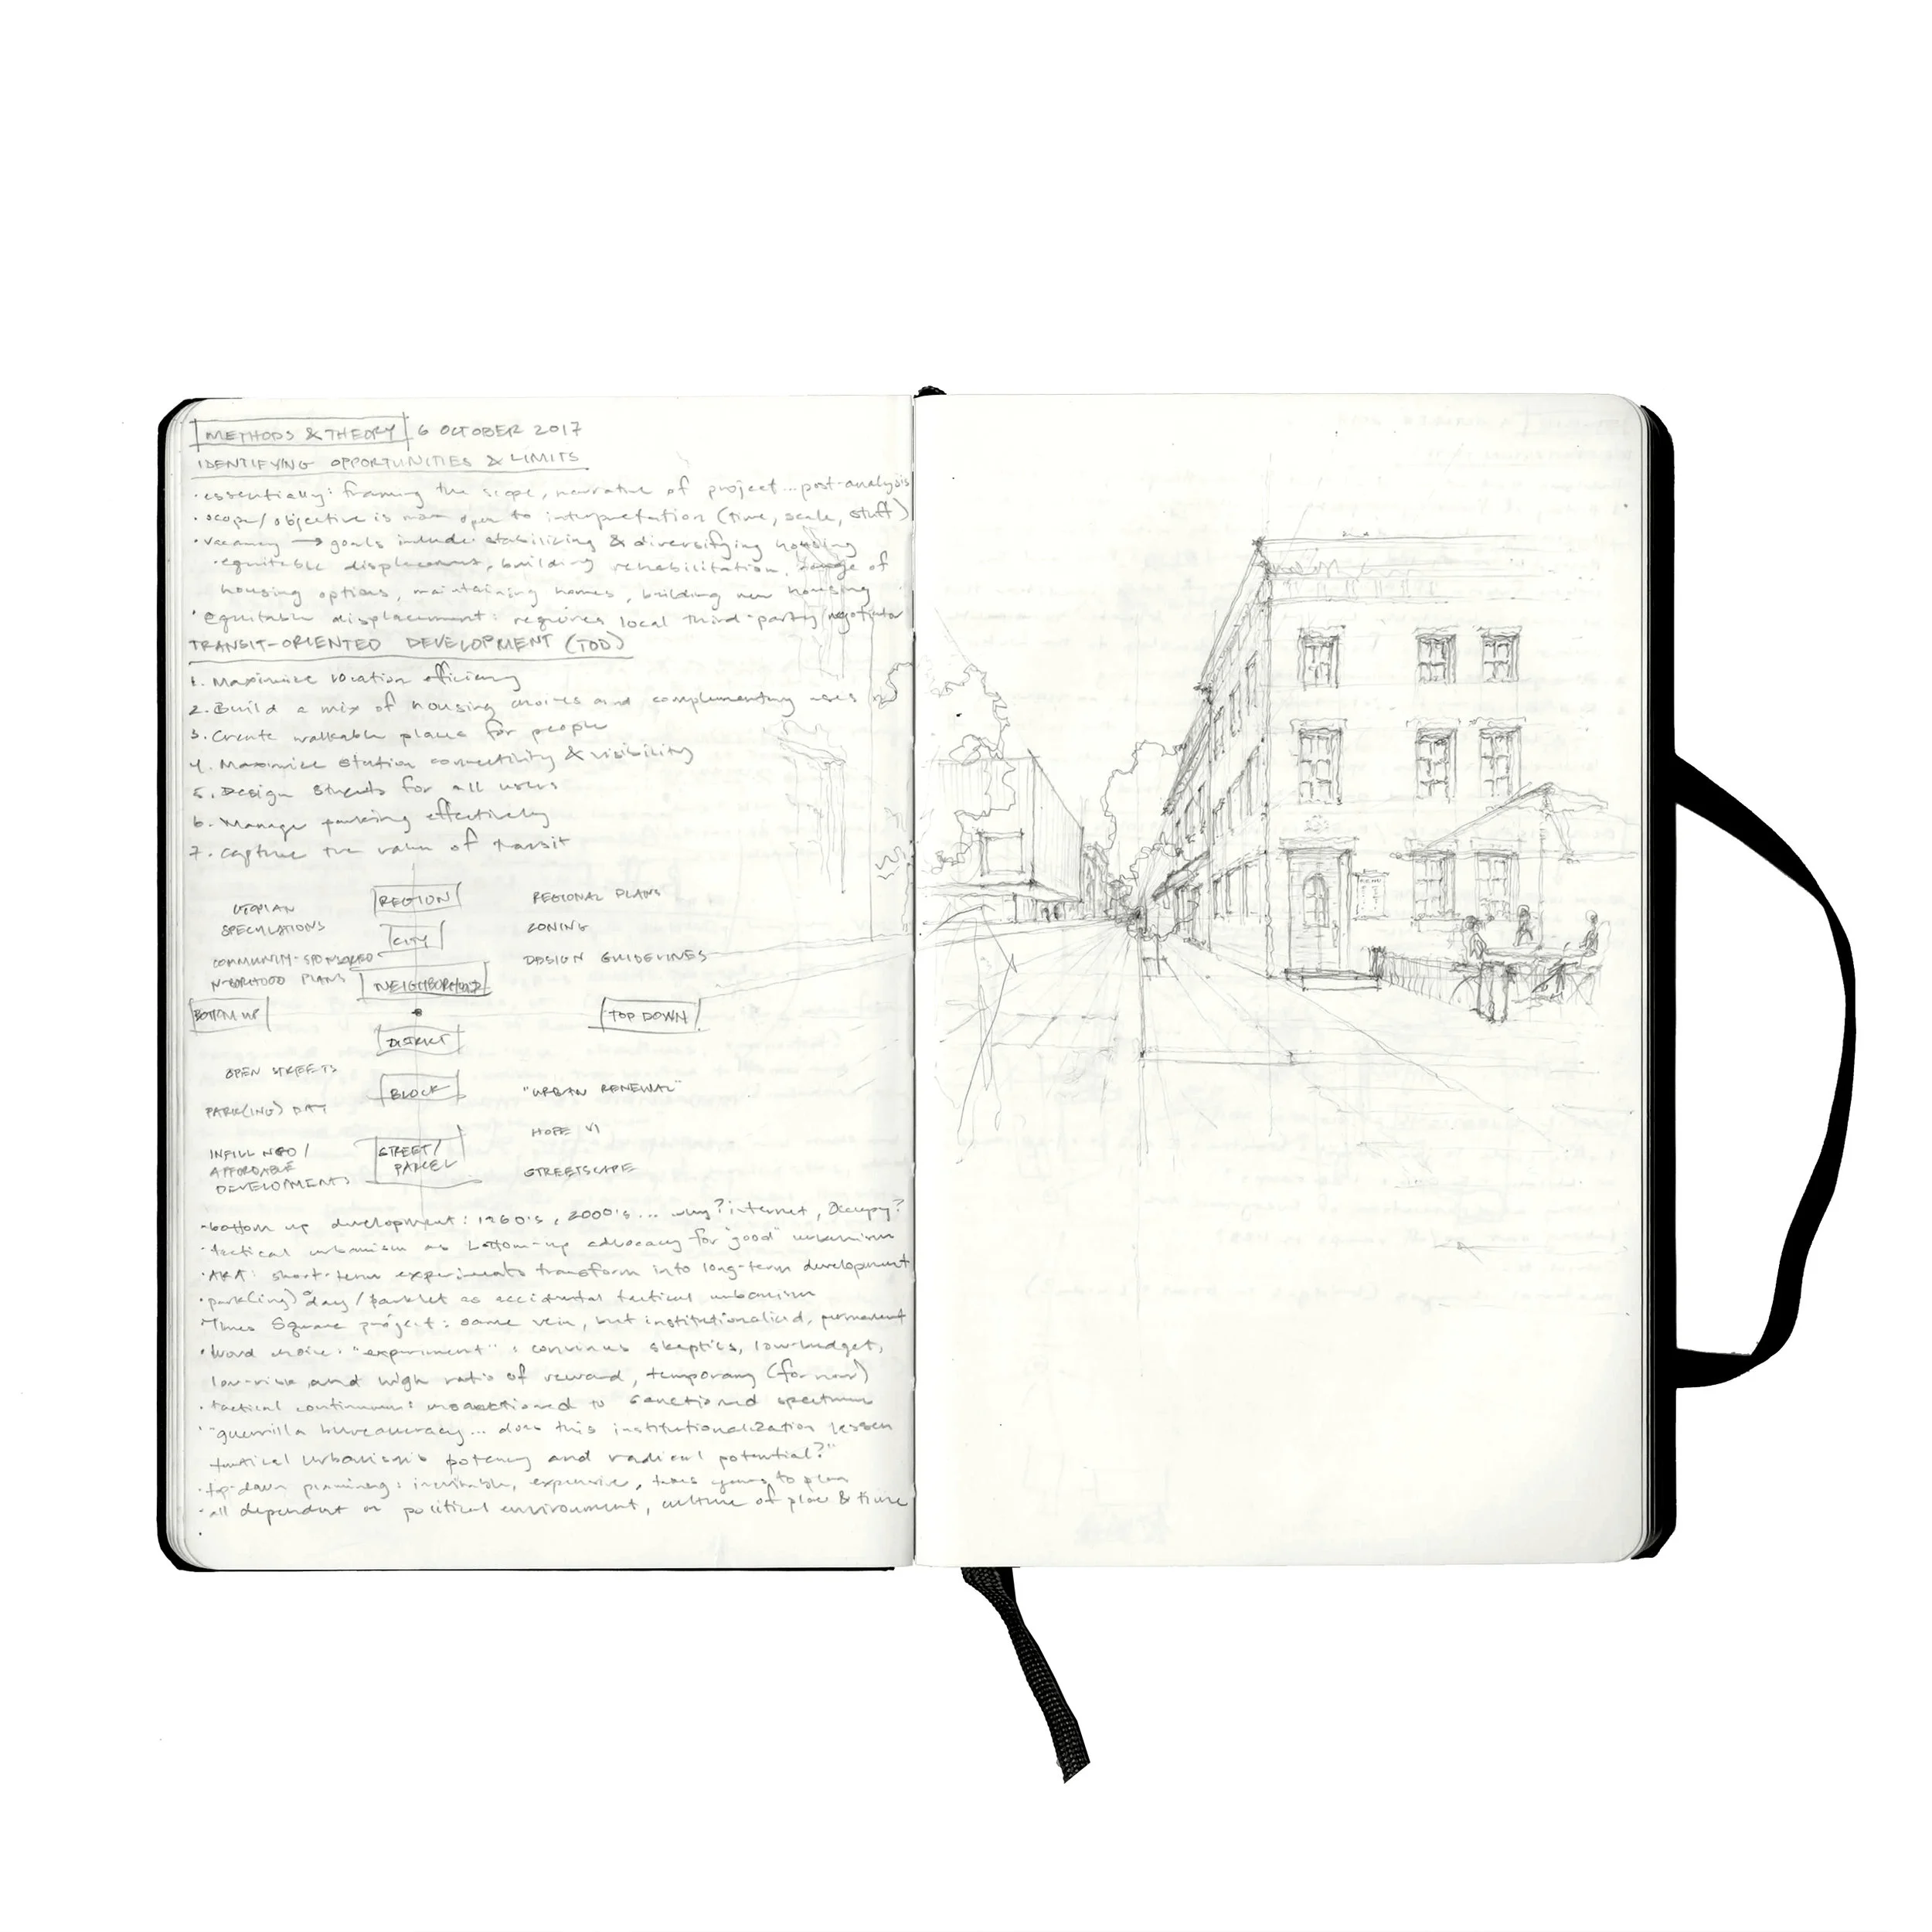 METHODS & THEORY 6 OCTOBER 2017
IDENTIFYING OPPORTUNITIES & LIMITS
• essentially: framing the scope, narrative of project... post-analysis
• scope/objective is more open to interpretation (time, scale, stuff)
• vacancy → goals include: stabilizing & diversifying housing
• equitable displacement, building rehabilitation, range of
housing options, maintaining homes, building new housing
• equitable displacement: requires local third-party negotiator
TRANSIT-ORIENTED DEVELOPMENT (TOD)
1. Maximize location efficiency
2. Build a mix of housing choices and complementary uses
3. Create walkable places for people
4. Maximize station connectivity & visibility
5. Design streets for all users
6. Manage parking effectively
7. Capture the value of transit
UTOPIAN
SPECULATIONS
REGION
REGIONAL PLANS
CITY
ZONING
COMMUNITY-SPONSORED
N-BORHOOD PLANS
NEIGHBORHOOD
DESIGN GUIDELINES
BOTTOM UP
TOP DOWN
DISTRICT
OPEN STREETS
BLOCK
"URBAN RENEWAL"
PARK(ING) DAY
HOPE VI
INFILL NGO/
AFFORDABLE
DEVELOPMENTS
STREET/
PARCEL
STREETSCAPE
• bottom up development: 1960's, 2000's... why? internet, Occupy?
• tactical urbanism as bottom-up advocacy for "good" urbanism
• AKA: short-term experiments transform into long-term development
• park(ing) day/parklet as accidental tactical urbanism
• Times Square project: same vein, but institutionalized, permanent
• Word choice: "experiment": convinces skeptics, low-budget,
low-risk and high ratio of reward, temporary (for now)
• tactical continuum: unsanctioned to sanctioned spectrum
• "guerrilla bureaucracy... does this institutionalization lessen
tactical urbanism's potency and radical potential?"
• top-down planning: inevitable, expensive, takes years to plan
• all dependent on political environment, culture of place & time
MENU